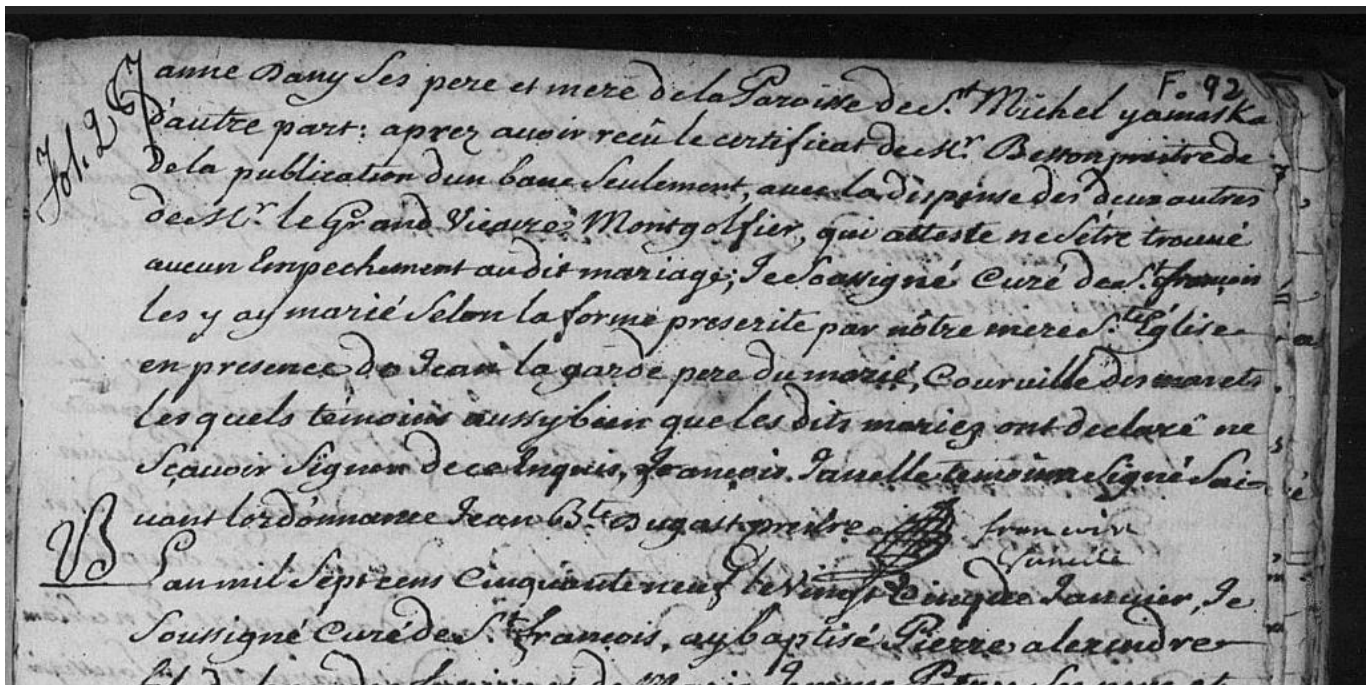 F. 92
fol. 2
anne Dany Ses pere et mere de la Paroisse de St. Michel yamaska
d'autre part: aprez avoir recû le certificat de Mr. Besson preitre de
de la publication d'un banc seulement, avec la dispense des deux autres
de Mr. le Grand Vicaire Montgolfier, qui atteste ne s'être trouvé
aucun Empechement audit mariage; Je Soussigné Curé de St. françois
les y ay marié Selon la forme prescrite par nôtre mere Ste. Eglise
en presence de Jean la garde pere du marié, Courville des marets
les quels témoins aussy bien que les dits mariez ont declaré ne
Sçavoir Signer de ce Inquis, françois Janelle temoin Signé Sui-
vant lordonnance Jean Bte. Dugast pretre françois
Janelle
B
Lan mil Sept cens Cinquante neuf le Vingt Cinq de Janvier, Je
Soussigné Curé de St. françois, ay baptisé Pierre alexindre